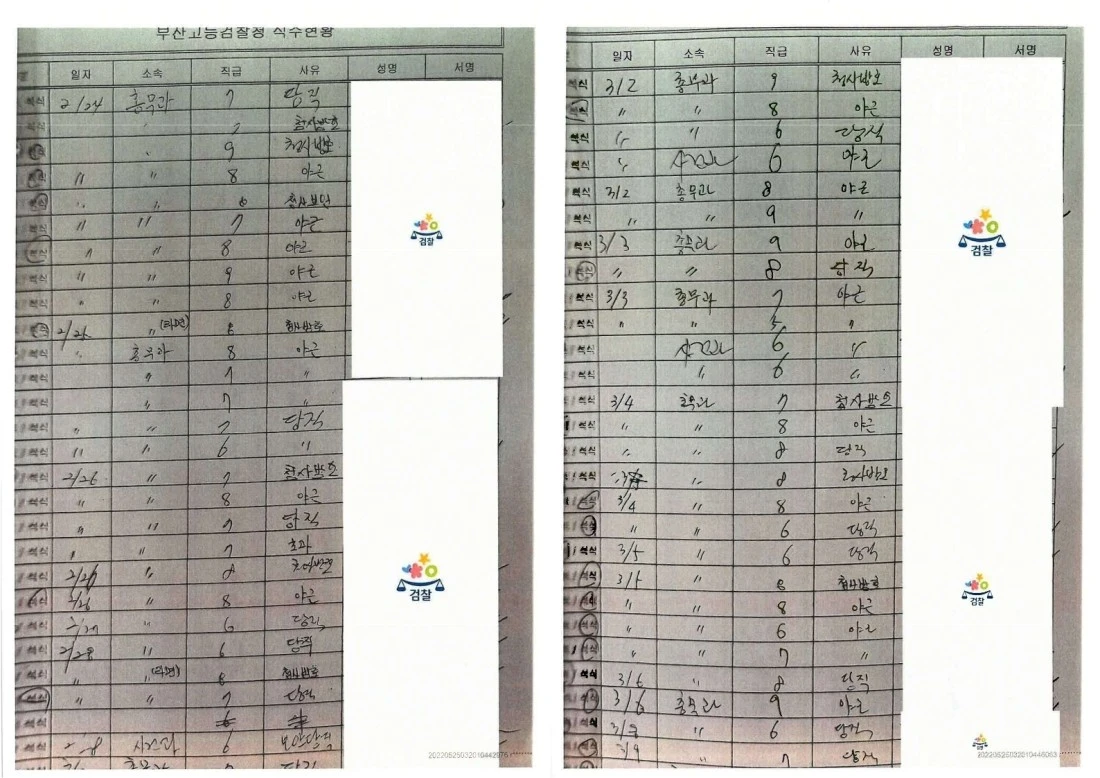 부산고등검찰청 식수현황
일자 소속 직급 사유 성명 서명
석식 2/24 총무과 7 당직
석식 " 7 청사방호
석식 " 9 청사방호
석식 " " 8 야근
석식 " " 8
석식 " " 7 야근
석식 " " 8 야근
석식 " " 9 야근
석식 " " 8 야근
석식 " 8 청사방호
석식 " 총무과 8 야근
석식 " 7 "
석식 " 7 "
석식 " " 7 당직
석식 " " 6 "
석식 2/26 " 7 청사방호
석식 " " 8 야근
석식 " " 7 당직
석식 " " 7 초과
석식 2/27 " 8
석식 2/26 " 8 야근
석식 2/27 " 6 당직
석식 2/28 " 6 당직
석식 " " 8 청사방호
석식 " " 7 당직
석식
석식 6
총무과 7 당직
검찰
검찰
20220525032010442976
일자 소속 직급 사유 성명 서명
석식 3/2 총무과 9 청사방호
" " 8 야근
석식 " " 6 당직
석식 " 사건과 6 야근
석식 3/2 총무과 8 야근
석식 " " 9 "
석식 3/3 총무과 9 야근
석식 " " 8 당직
석식 3/3 총무과 7 야근
석식 " " 5 "
석식 사건과 6 "
석식 " 6 "
석식 3/4 총무과 7 청사방호
석식 " " 8 야근
석식 " " 8 당직
석식 " 8
석식 3/4 " 8 야근
석식 " " 6 당직
석식 3/5 " 6 당직
석식 3/5 " 8 청사방호
석식 " " 8 야근
석식 " " 6 야근
석식 " " 7 "
석식 3/6 " 8 당직
석식 3/6 총무과 9 야근
석식 " 6 당직
석식 3/9 " 7 당직
검찰
검찰
검찰
20220525032010446063